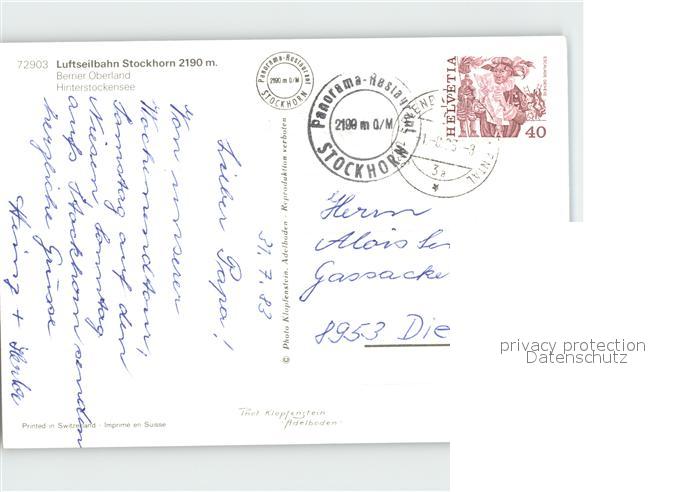 72903 Luftseilbahn Stockhorn 2190 m.
Berner Oberland
Hinterstockensee
Panorama-Restaurant
2190 m ü/M
STOCKHORN
Panorama-Restaurant
2190 m ü/M
STOCKHORN
3a
HELVETIA
40
31.7.83
Lieber Papa!
Von unserer
Wochenendtour,
Samstag auf den
Niesen, Sonntag
aufs Stockhorn senden
herzliche Grüsse
Heinz +
Herrn
Alois
Gassacke
8953 Die
© Photo Klopfenstein, Adelboden - Reproduktion verboten
Phot Klopfenstein
"Adelboden"
Printed in Switzerland - Imprimé en Suisse
privacy protection
Datenschutz